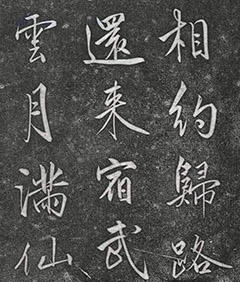 相約歸路
還来宿武
雲月滿仙